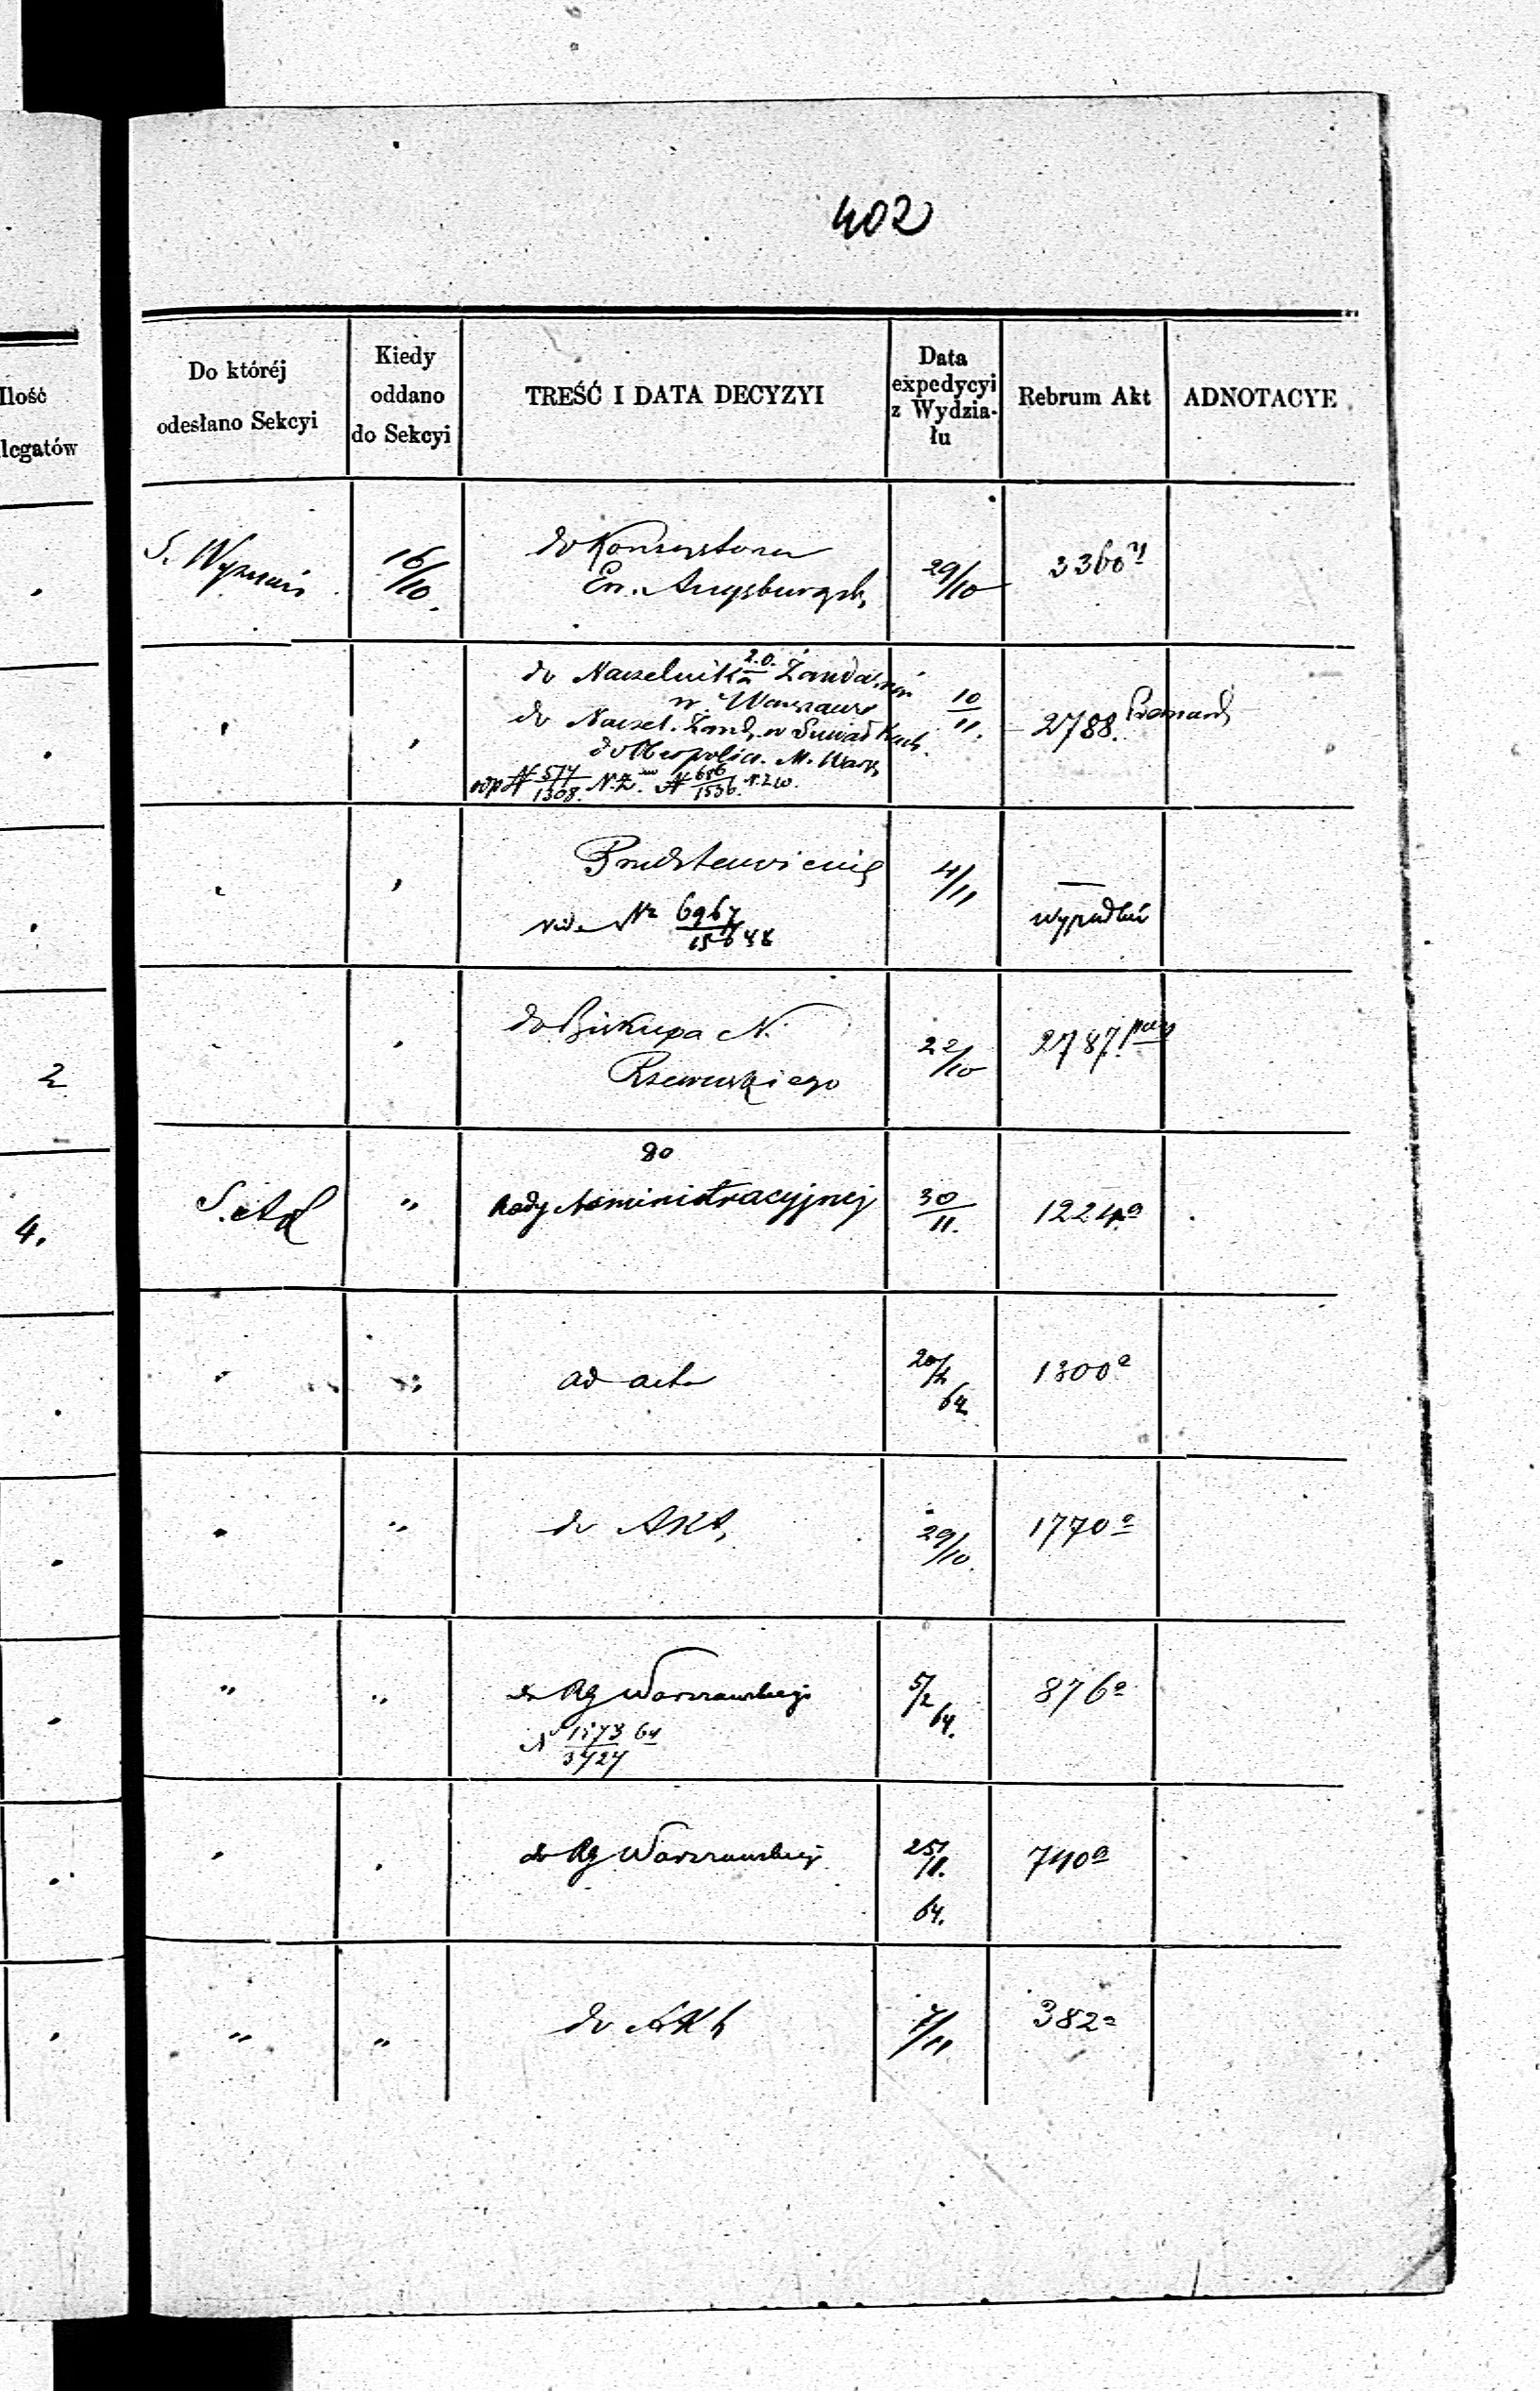 402
Ilość
legatów
Do któréj
odesłano Sekcyi
Kiedy
oddano
do Sekcyi
TREŚĆ I DATA DECYZYI
Data
expedycyi
z Wydzia-
łu
Rebrum Akt
ADNOTACYE
S. Wyznań
16/10.
do Konsystorza
Ew. Augsburgsk.
29/10
3360
do Naczelnika Żandar
w Warszawie
do Naczel. Żand. w Suwałkach.
do Oberpolicm. M. Warsz
N 574/1308. N 686/1536.
10/11.
2788.
Przedstawienie
vide Nr 6967/15648
4/11
—
wypadków
2
do Biskupa N.
Rzewuskiego
22/10
2787.
4.
S. Ad
"
do
Rady Administracyjnej
30/11.
1224a
"
ad acta
64
1300a
"
do Akt,
29/10.
1770a
"
"
do Rg Warszawskiego
N 1573/3424 64
5/2 64.
876a
do Rg Warszawskiego
25/11.
64.
740a
"
"
do Akt
7/11
382a